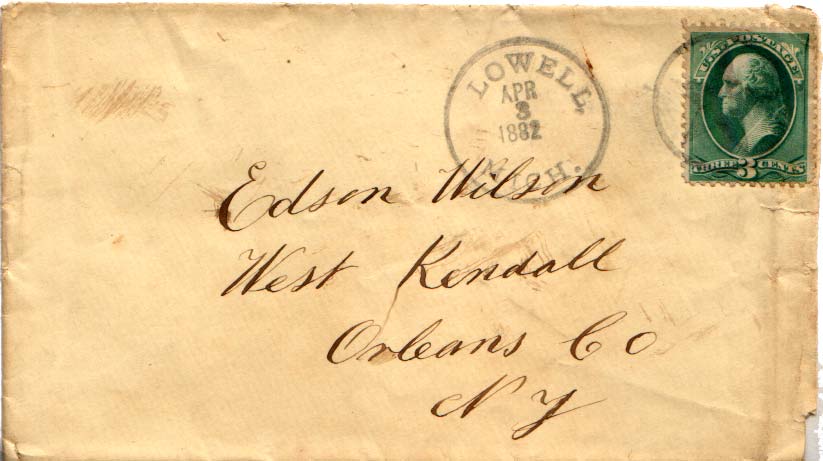 LOWELL,
APR
3
1882
MICH.
U.S. POSTAGE
THREE 3 CENTS
Edson Wilson
West Kendall
Orleans Co
N Y